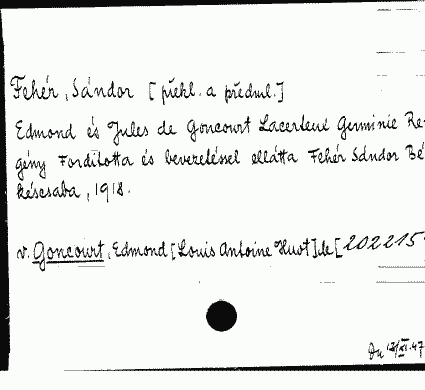 Fehér, Sándor [překl. a předml.]
Edmond és Jules de Goncourt Lacerteux Germinie Re-
gény Fordította és bevezetéssel ellátta Fehér Sándor Bé-
késcsaba, 1918.
v. Goncourt, Edmond [Louis Antoine Huot] de [202215
12/XI.47